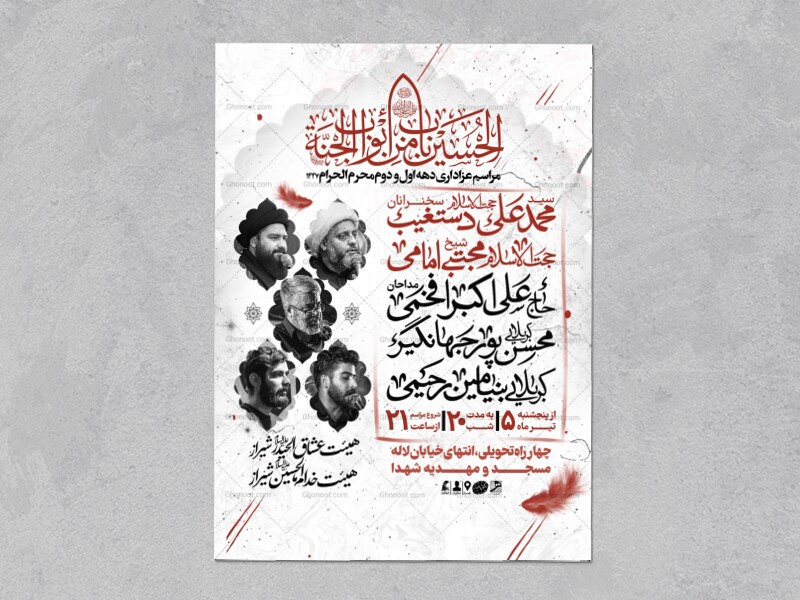 الحسین باب من أبواب الجنة
مراسم عزاداری دهه اول و دوم محرم الحرام ۱۴۴۷
سخنرانان
حجت الاسلام سید محمد علی دستغیب
حجت الاسلام شیخ مجتبی امامی
مداحان
حاج علی اکبر افخمی
کربلایی محسن پورجهانگیر
کربلایی بنیامین رحیمی
از پنجشنبه ۵ تیر ماه | به مدت ۲۰ شب | شروع مراسم از ساعت ۲۱
چهارراه تحویلی، انتهای خیابان لاله
مسجد و مهدیه شهدا
هیئت عشاق الحیدر شیراز
هیئت خدام الحسین شیراز
Ghonoot.com